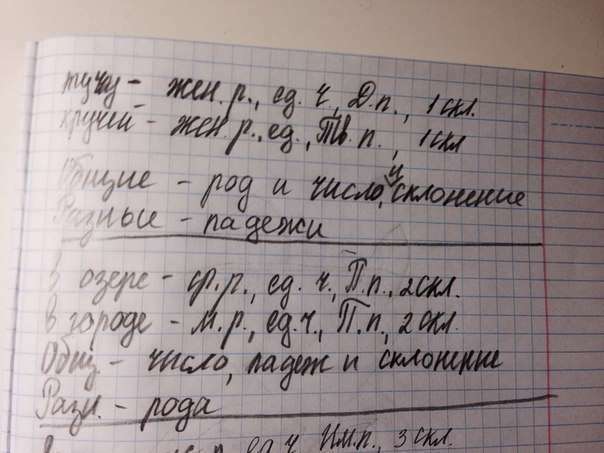 тучу - жен. р., ед. ч, Д.п., 1 скл.
кручей - жен. р., ед., Тв. п., 1 скл
Общие - род и число, и склонение
Разные - падежи
в озере - ср. р., ед. ч., П.п., 2 скл.
в городе - м. р., ед. ч., П.п., 2 скл.
Общ. - число, падеж и склонение
Разн. - рода
ед ч Им.п., 3 скл.